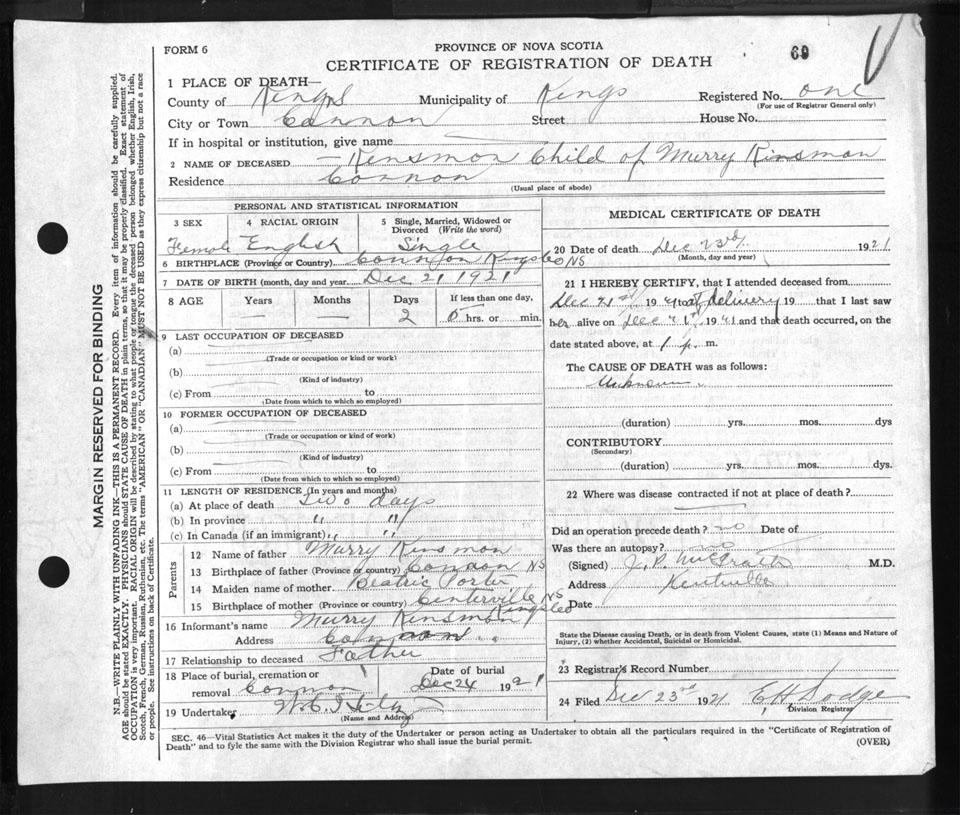 FORM 6
PROVINCE OF NOVA SCOTIA
69
CERTIFICATE OF REGISTRATION OF DEATH
1 PLACE OF DEATH—
County of Kings Municipality of Kings Registered No. one
(For use of Registrar General only)
City or Town Cannon Street House No.
If in hospital or institution, give name
2 NAME OF DECEASED — Kinsmon Child of Murry Kinsmon
Residence Connon
(Usual place of abode)
PERSONAL AND STATISTICAL INFORMATION
3 SEX 4 RACIAL ORIGIN 5 Single, Married, Widowed or Divorced (Write the word)
Female English Single
6 BIRTHPLACE (Province or Country) Connon Kings Co NS
7 DATE OF BIRTH (month, day and year) Dec 21 1921
8 AGE Years Months Days If less than one day,
— — 2 0 hrs. or min.
9 LAST OCCUPATION OF DECEASED
(a)
(Trade or occupation or kind or work)
(b)
(Kind of industry)
(c) From to
(Date from which to which so employed)
10 FORMER OCCUPATION OF DECEASED
(a)
(Trade or occupation or kind of work)
(b)
(Kind of industry)
(c) From to
(Date from which to which so employed)
11 LENGTH OF RESIDENCE (In years and months)
(a) At place of death Two days
(b) In province " "
(c) In Canada (if an immigrant) " "
Parents
12 Name of father Murry Kinsmon
13 Birthplace of father (Province or country) Connon NS
14 Maiden name of mother Beatric Porter
15 Birthplace of mother (Province or country) Centerville NS
Kings Co
16 Informant's name Murry Kinsmon
Address Connon
17 Relationship to deceased Father
18 Place of burial, cremation or removal Connon Date of burial Dec 24 1921
19 Undertaker
(Name and Address)
MEDICAL CERTIFICATE OF DEATH
20 Date of death Dec 23rd 1921
(Month, day and year)
21 I HEREBY CERTIFY, that I attended deceased from
Dec 21st 19 at delivery 19 that I last saw
her alive on Dec 21st 1921 and that death occurred, on the
date stated above, at 1 p. m.
The CAUSE OF DEATH was as follows:
Unknown
(duration) yrs. mos. dys
CONTRIBUTORY
(Secondary)
(duration) yrs. mos. dys.
22 Where was disease contracted if not at place of death?
Did an operation precede death? no Date of
Was there an autopsy? no
(Signed) M.D.
Address Kentville
Date
State the Disease causing Death, or in death from Violent Causes, state (1) Means and Nature of Injury, (2) whether Accidental, Suicidal or Homicidal.
23 Registrar's Record Number
24 Filed Dec 23rd 1921 E H Dodge
Division Registrar
SEC. 46—Vital Statistics Act makes it the duty of the Undertaker or person acting as Undertaker to obtain all the particulars required in the "Certificate of Registration of
Death" and to fyle the same with the Division Registrar who shall issue the burial permit.
(OVER)
MARGIN RESERVED FOR BINDING
N.B.—WRITE PLAINLY WITH UNFADING INK—THIS IS A PERMANENT RECORD. Every item of information should be carefully supplied.
AGE should be stated EXACTLY. PHYSICIANS should STATE CAUSE OF DEATH in plain terms, so that it may be properly classified. Exact statement of
OCCUPATION is very important. RACIAL ORIGIN will be described by stating to what people or tongue the deceased person belonged whether English, Irish,
Scotch, French, German, Russian, Ruthenian, etc. The terms "AMERICAN" OR "CANADIAN" MUST NOT BE USED as they express citizenship but not a race
or people. See instructions on back of Certificate.